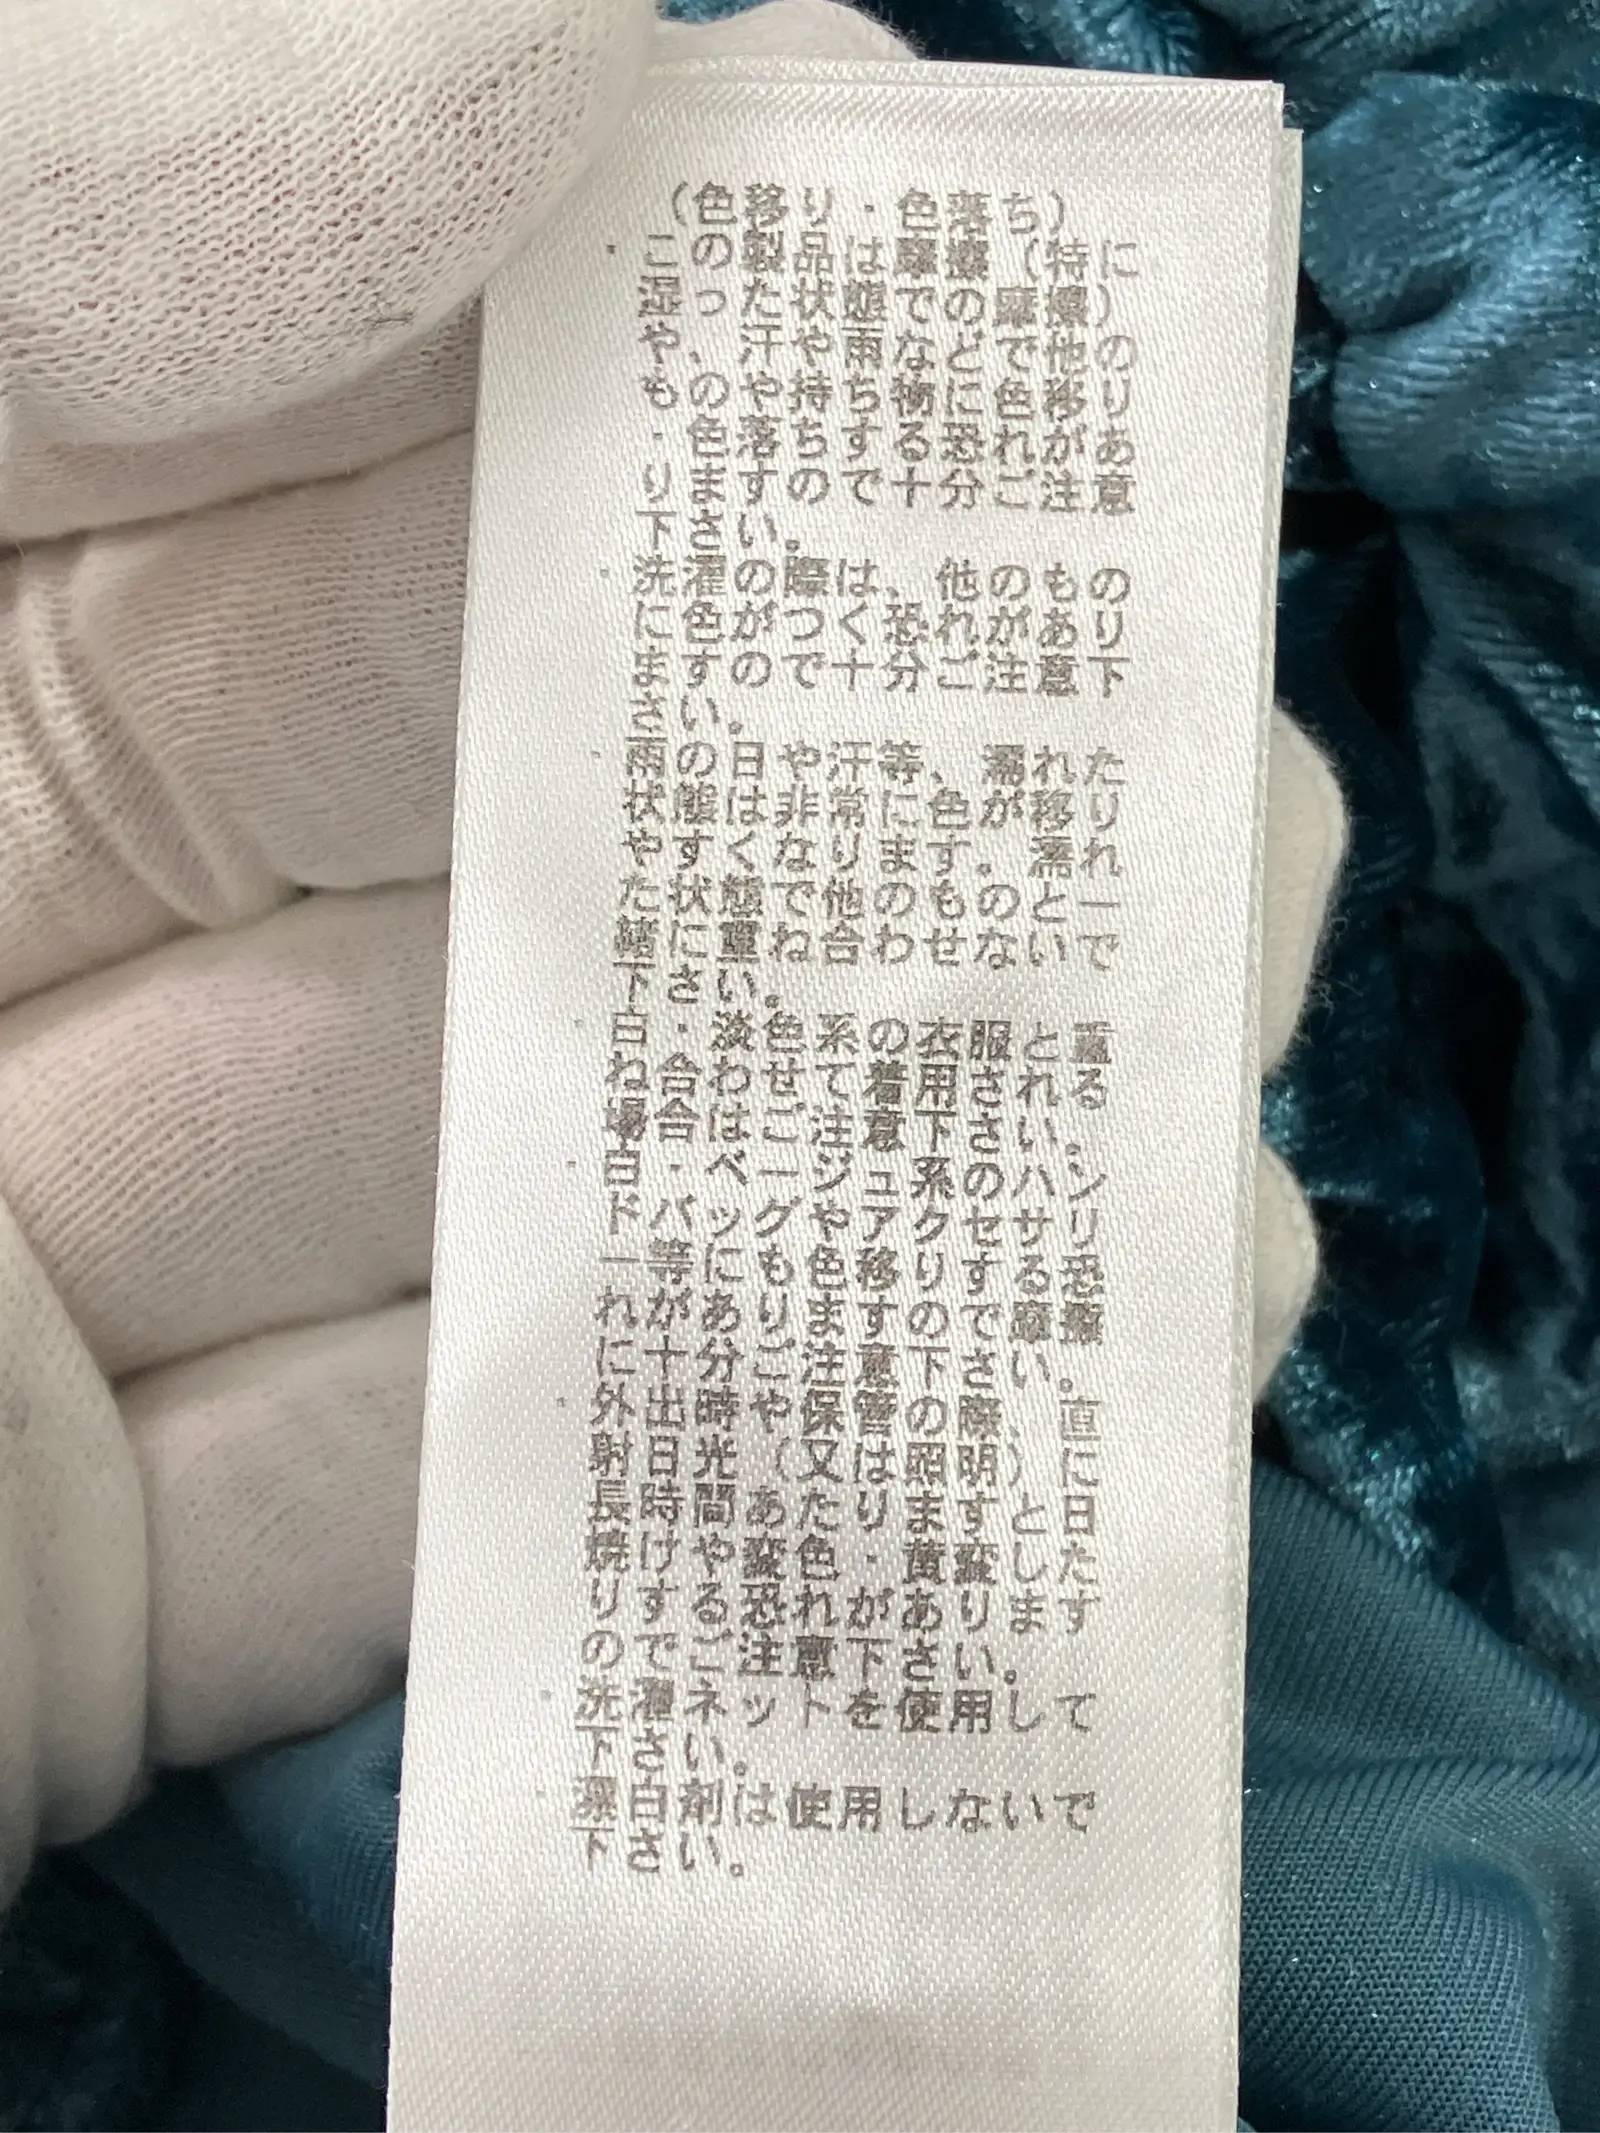 （色移り・色落ち）
・この製品は摩擦（特に
湿った状態での摩擦）
や、汗や雨などで他の
もの や持ち物に色移り
・色落ちする恐れがあ
りますので十分ご注意
下さい。
・洗濯の際は、他のもの
に色がつく恐れがあり
ますので十分ご注意下
さい。
・雨の日や汗等、濡れた
状態は非常に色が移り
やすくなります。濡れ
た状態で他のものと一
緒に重ね合わせないで
下さい。
白・淡色系の衣服と重
ね合わせて着用される
場合はご注意下さい。
・白・ベージュ系のハン
ドバッグやアクセサリ
ー等にも色移りする恐
れがありますので摩擦
に十分ご注意下さい。
・外出時や保管の際、直
射日光（又は照明）に
長時間あたりますと日
焼けや変色・黄変した
りする恐れがあります
のでご注意下さい。
・洗濯ネットを使用して
下さい。
・漂白剤は使用しないで
下さい。